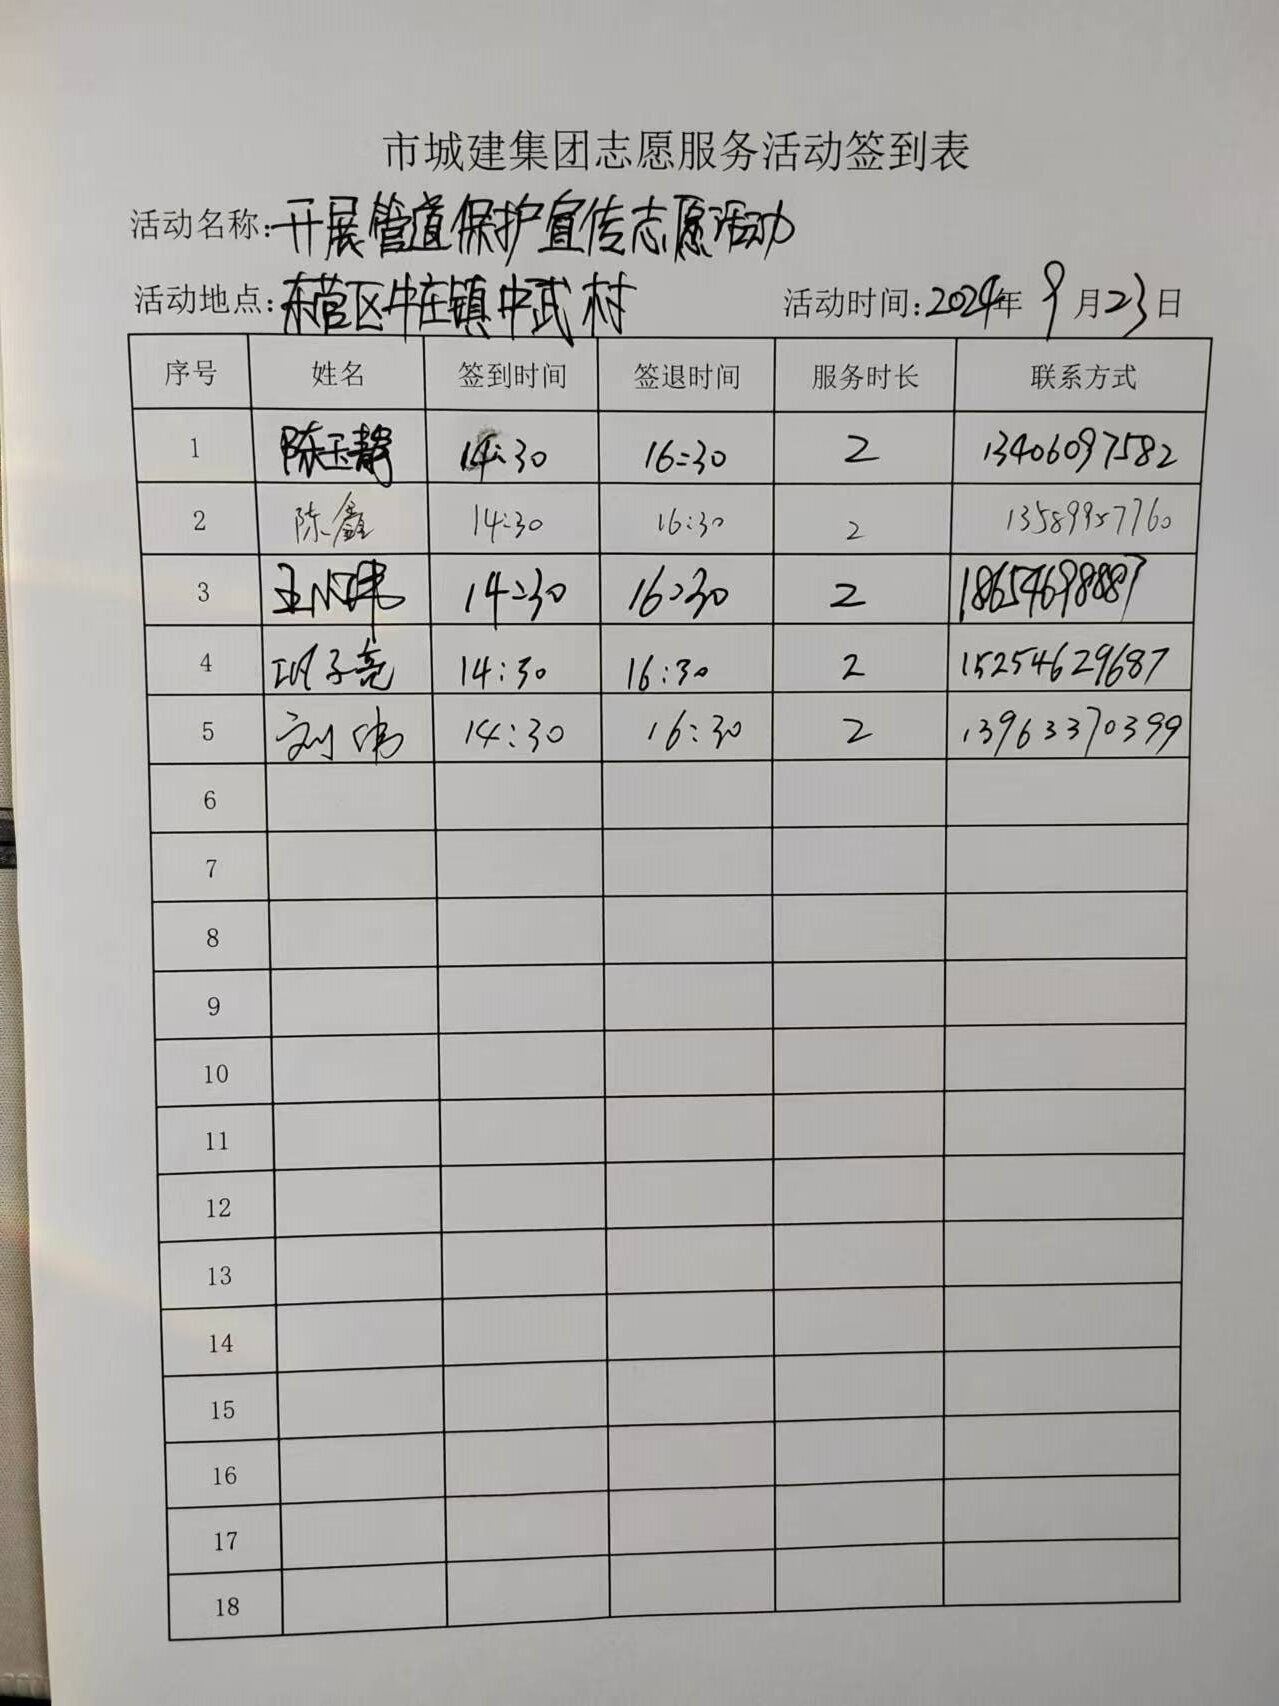 市城建集团志愿服务活动签到表
活动名称:开展管道保护宣传志愿活动
活动地点:东营区牛庄镇中武村 活动时间:2024年9月23日
序号 姓名 签到时间 签退时间 服务时长 联系方式
1 陈玉静 14:30 16:30 2 13406097582
2 陈鑫 14:30 16:30 2 13589957760
3 14:30 16:30 2 18654698887
4 子亮 14:30 16:30 2 15254629687
5 刘伟 14:30 16:30 2 13963370399
6
7
8
9
10
11
12
13
14
15
16
17
18